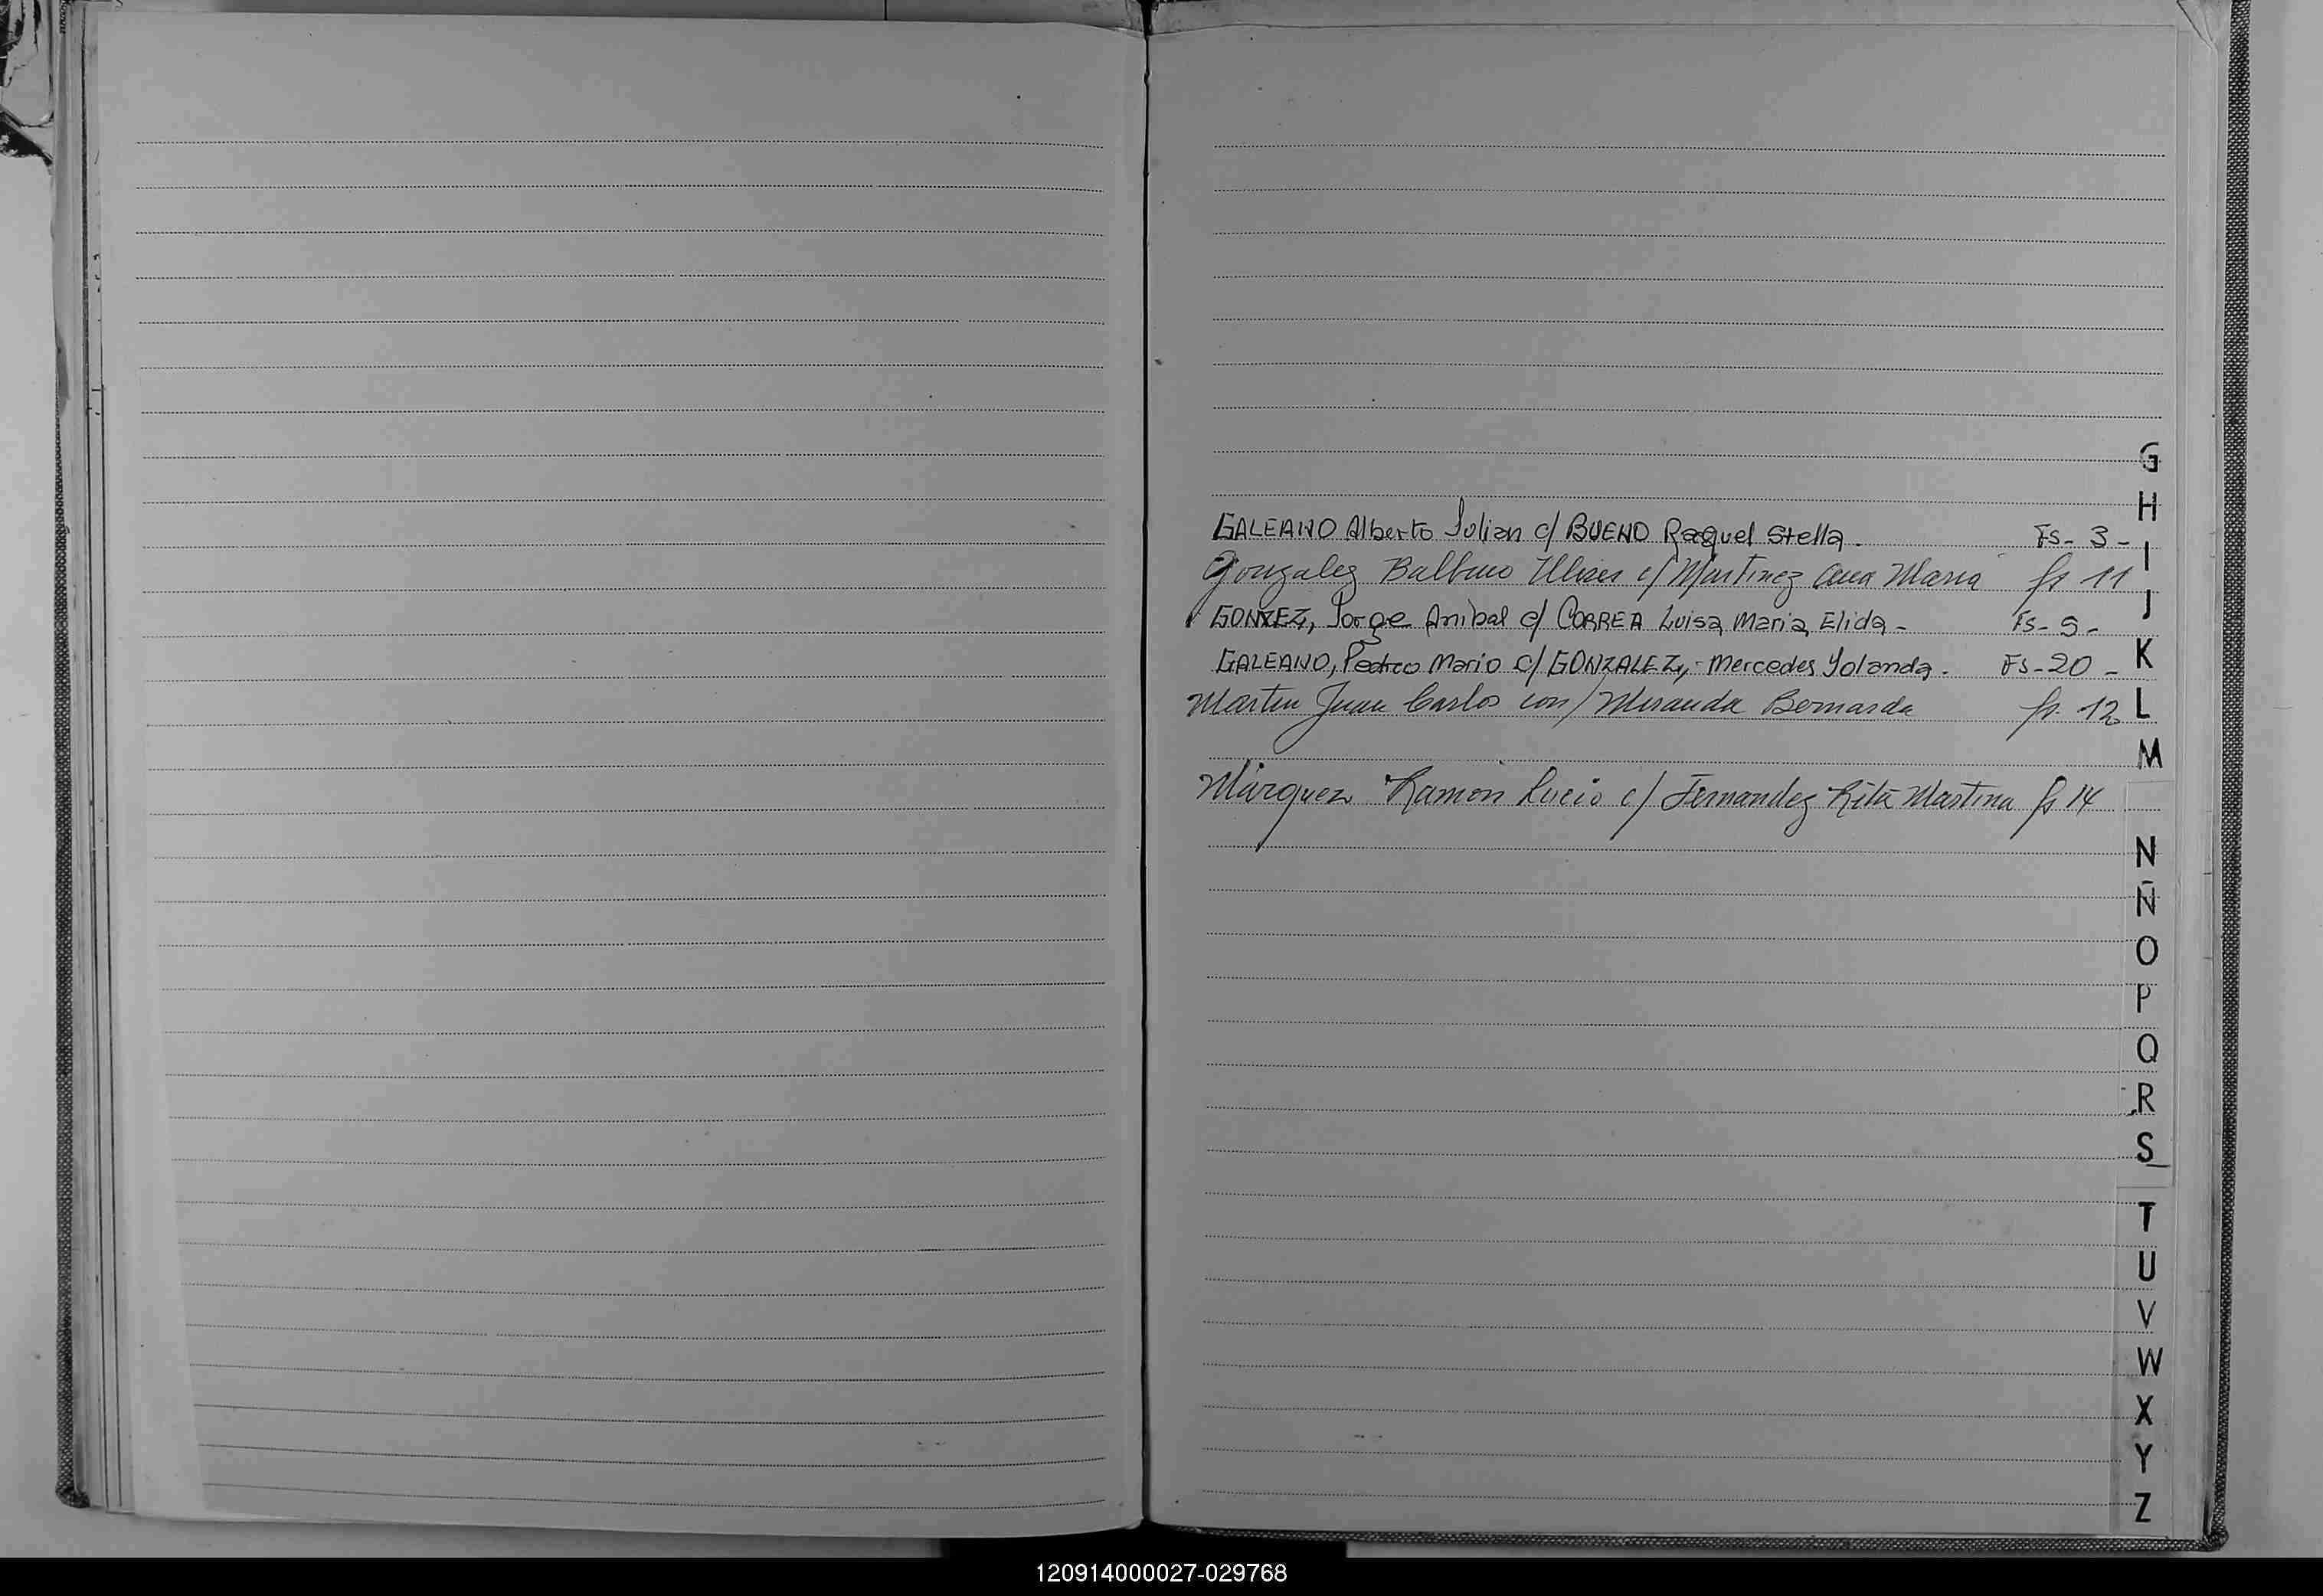 G
H
GALEANO Alberto Julian c/ BUENO Raquel Stella. Fs- 3-
I
Gonzalez Balbino Ulises c/ Martinez Ana Maria fs 11
J
GONZEZ, Jorge Anibal c/ CORREA Luisa Maria Elida- Fs- 9-
K
GALEANO, Pedro Mario c/ GONZALEZ,- Mercedes Yolanda. Fs-20-
L
Martin Juan Carlos con/ Miranda Bernarda fs. 12
M
Márquez Ramón Lucio c/ Fernandez Rita Martina fs 14
N
Ñ
O
P
Q
R
S
T
U
V
W
X
Y
Z
120914000027-029768